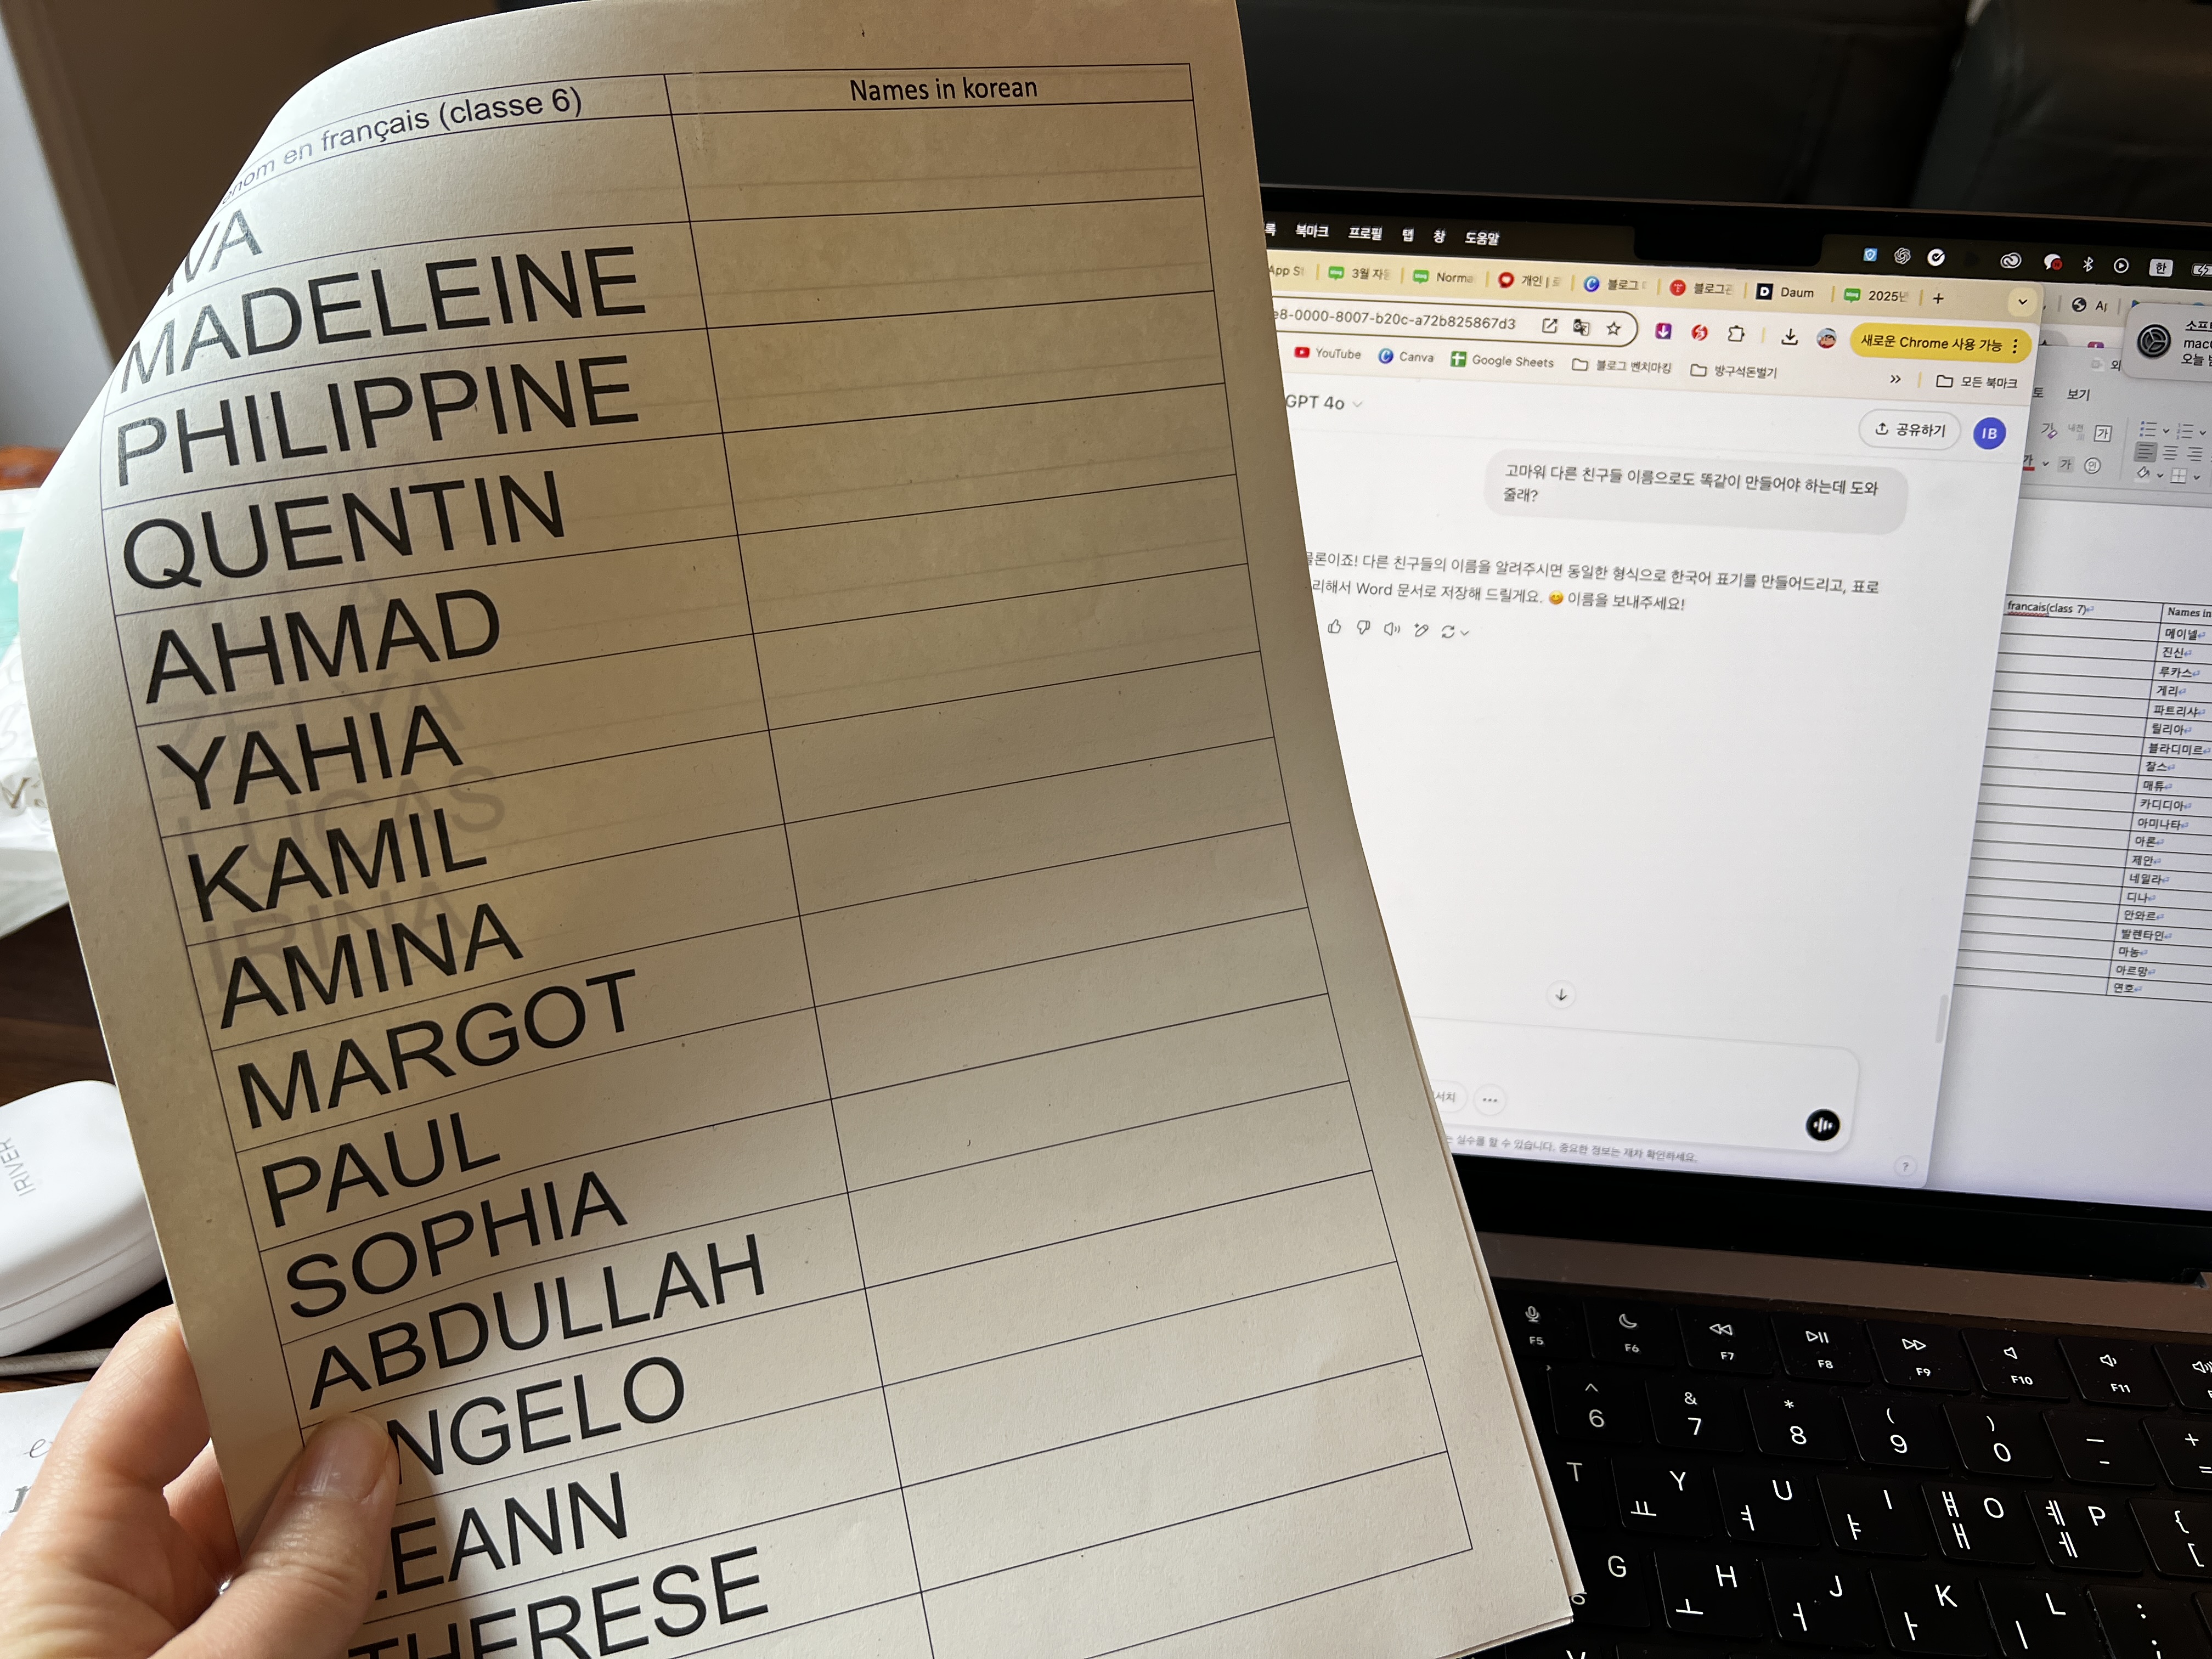 en français (classe 6)
Names in korean
MADELEINE
PHILIPPINE
QUENTIN
AHMAD
YAHIA
KAMIL
AMINA
MARGOT
PAUL
SOPHIA
ABDULLAH
NGELO
LEANN
THERESE
ZELYA
LUCAS
IRINA
IRIVER
북마크 프로필 탭 창 도움말
한
3월
개인
블로그
Daum
2025년
e8-0000-8007-b20c-a72b825867d3
새로운 Chrome 사용 가능
YouTube
Canva
Google Sheets
블로그 벤치마킹
방구석돈벌기
모든 북마크
GPT 4o
공유하기
IB
고마워 다른 친구들 이름으로도 똑같이 만들어야 하는데 도와
줄래?
물론이죠! 다른 친구들의 이름을 알려주시면 동일한 형식으로 한국어 표기를 만들어드리고, 표로
리해서 Word 문서로 저장해 드릴게요. 😊 이름을 보내주세요!
실수를 할 수 있습니다. 중요한 정보는 재차 확인하세요.
?
보기
가
francais(class 7)
Names in
메이넬
진신
루카스
게리
파트리샤
릴리아
블라디미르
찰스
매튜
카디디아
아미나타
아론
제안
네일라
디나
안와르
발렌타인
마농
아르망
연호
F5 F6 F7 F8 F9 F10 F11
^ & * ( )
6 7 8 9 0
T Y U I O P
ㅛ ㅕ ㅑ ㅒ ㅐ ㅖ ㅔ
G H J K L
ㅗ ㅓ ㅏ ㅣ